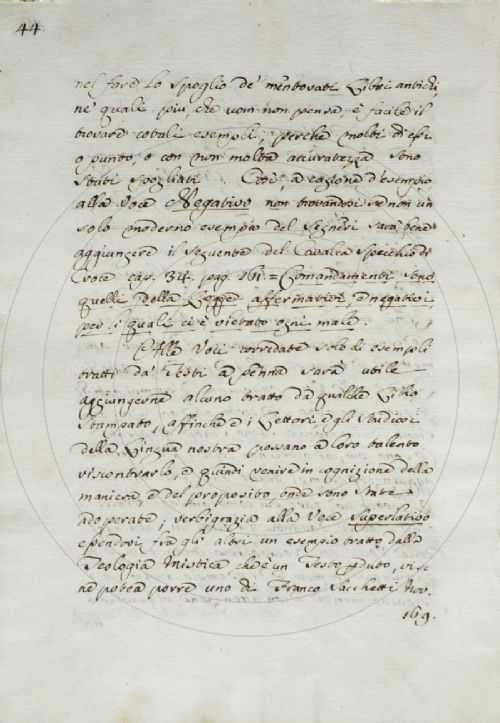 44.
nel fare lo spoglio de' mentovati Libri antichi,
ne' quali più, che uom non pensa, è facile il
trovare cotali esempli, perchè molti d'essi
o punto, o con non molta accuratezza sono
stati spogliati. Così, a cagione d'esempio
alla Voce Negativo non trovandosi se non un
solo moderno esempio del Segneri sarà bene
aggiungere il seguente del Cavalca Specchio di
Croce cap. 34. pag. 161 = Comandamenti sono
quelli della Legge affermativi, e negativi,
per i quali ci è vietato ogni male.
Alle Voci corredate solo di esempli
tratti da' Testi a penna sarà utile
aggiungerne alcuno tratto da qualche Libro
stampato, affinchè i Lettori, e gli studiosi
della Lingua nostra possano a loro talento
riscontrarlo, e quindi venire in cognizione della
maniera, e del proposito, onde sono state
adoperate; verbigrazia alla Voce Superlativo
essendovi fra gli altri un esempio tratto dalla
Teologia Mistica che è un Testo perduto, vi se
ne potea porre uno di Franco Sacchetti Nov.
169.